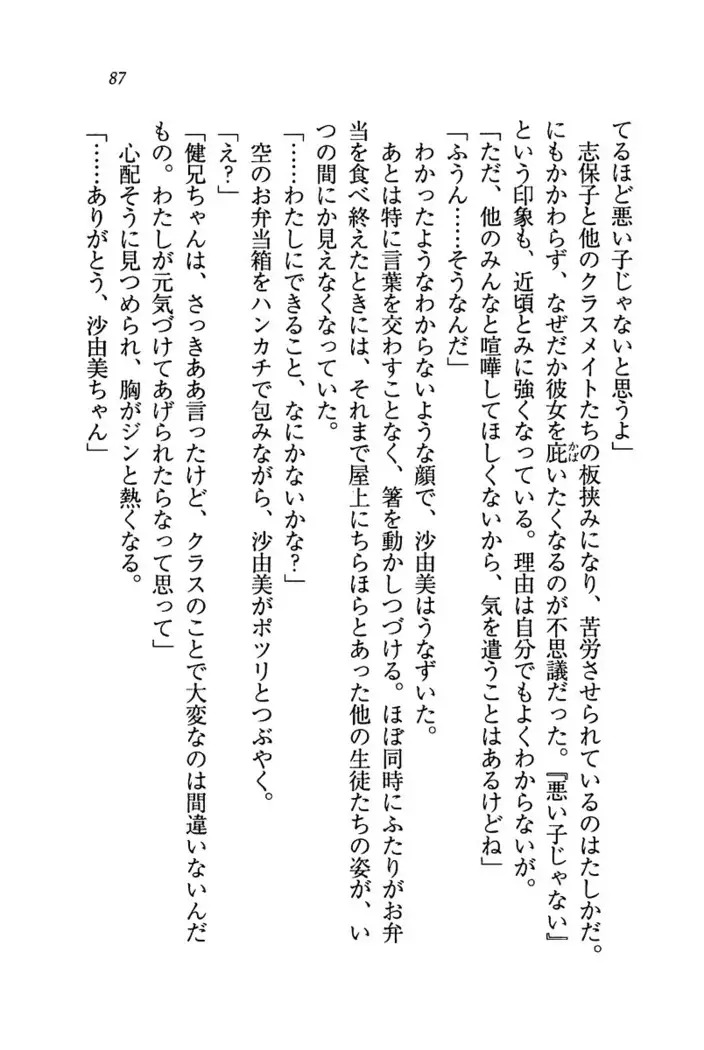 87
てるほど悪い子じゃないと思うよ」
志保子と他のクラスメイトたちの板挟みになり、苦労させられているのはたしかだ。
にもかかわらず、なぜだか彼女を庇いたくなるのが不思議だった。『悪い子じゃない』
かば
という印象も、近頃とみに強くなっている。理由は自分でもよくわからないが。
「ただ、他のみんなと喧嘩してほしくないから、気を遣うことはあるけどね」
「ふうん……そうなんだ」
わかったようなわからないような顔で、沙由美はうなずいた。
あとは特に言葉を交わすことなく、箸を動かしつづける。ほぼ同時にふたりがお弁
当を食べ終えたときには、それまで屋上にちらほらとあった他の生徒たちの姿が、い
つの間にか見えなくなっていた。
「……わたしにできること、なにかないかな？」
空のお弁当箱をハンカチで包みながら、沙由美がポツリとつぶやく。
「え？」
「健兄ちゃんは、さっきああ言ったけど、クラスのことで大変なのは間違いないんだ
もの。わたしが元気づけてあげられたらなって思って」
心配そうに見つめられ、胸がジンと熱くなる。
「……ありがとう、沙由美ちゃん」